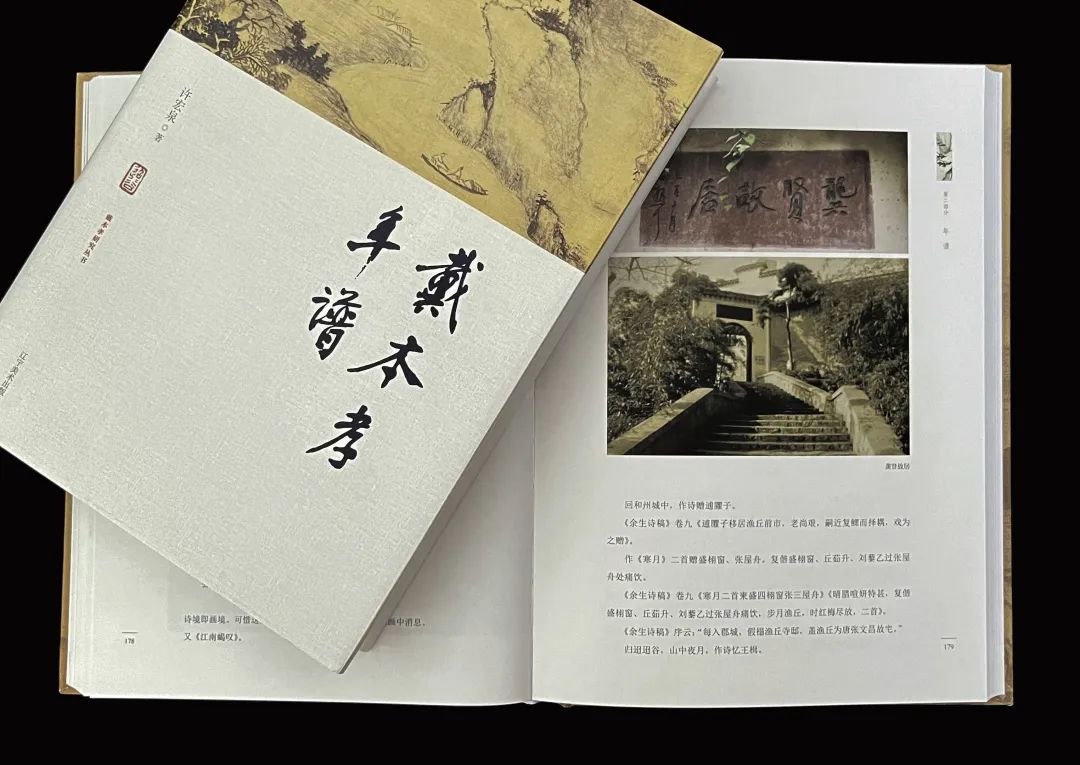 许宏泉◎著
戴本孝研究丛书
戴本孝
年谱
辽宁美术出版
诗境即画境。可惜
画中消息。
又《江南蝎叹》。
178
龚贤故居
龚贤故居
第二部分 年谱
回和州城中,作诗赠逋臞子。
《余生诗稿》卷九《逋臞子移居渔丘前市,老尚艰,嗣近复鳏而择耦,戏为
之赠》。
作《寒月》二首赠盛栩窗、张屋舟。复偕盛栩窗、丘茹升、刘藜乙过张屋
舟处痛饮。
《余生诗稿》卷九《寒月二首柬盛四栩窗张三屋舟》《晴腊暄妍特甚,复偕
盛栩窗、丘茹升、刘藜乙过张屋舟痛饮,步月渔丘,时红梅尽放,二首》。
《余生诗稿》序云:“每入郡城,假榻渔丘寺邸,盖渔丘为唐张文昌故宅。”
归迢迢谷,山中夜月,作诗忆王楫。
179